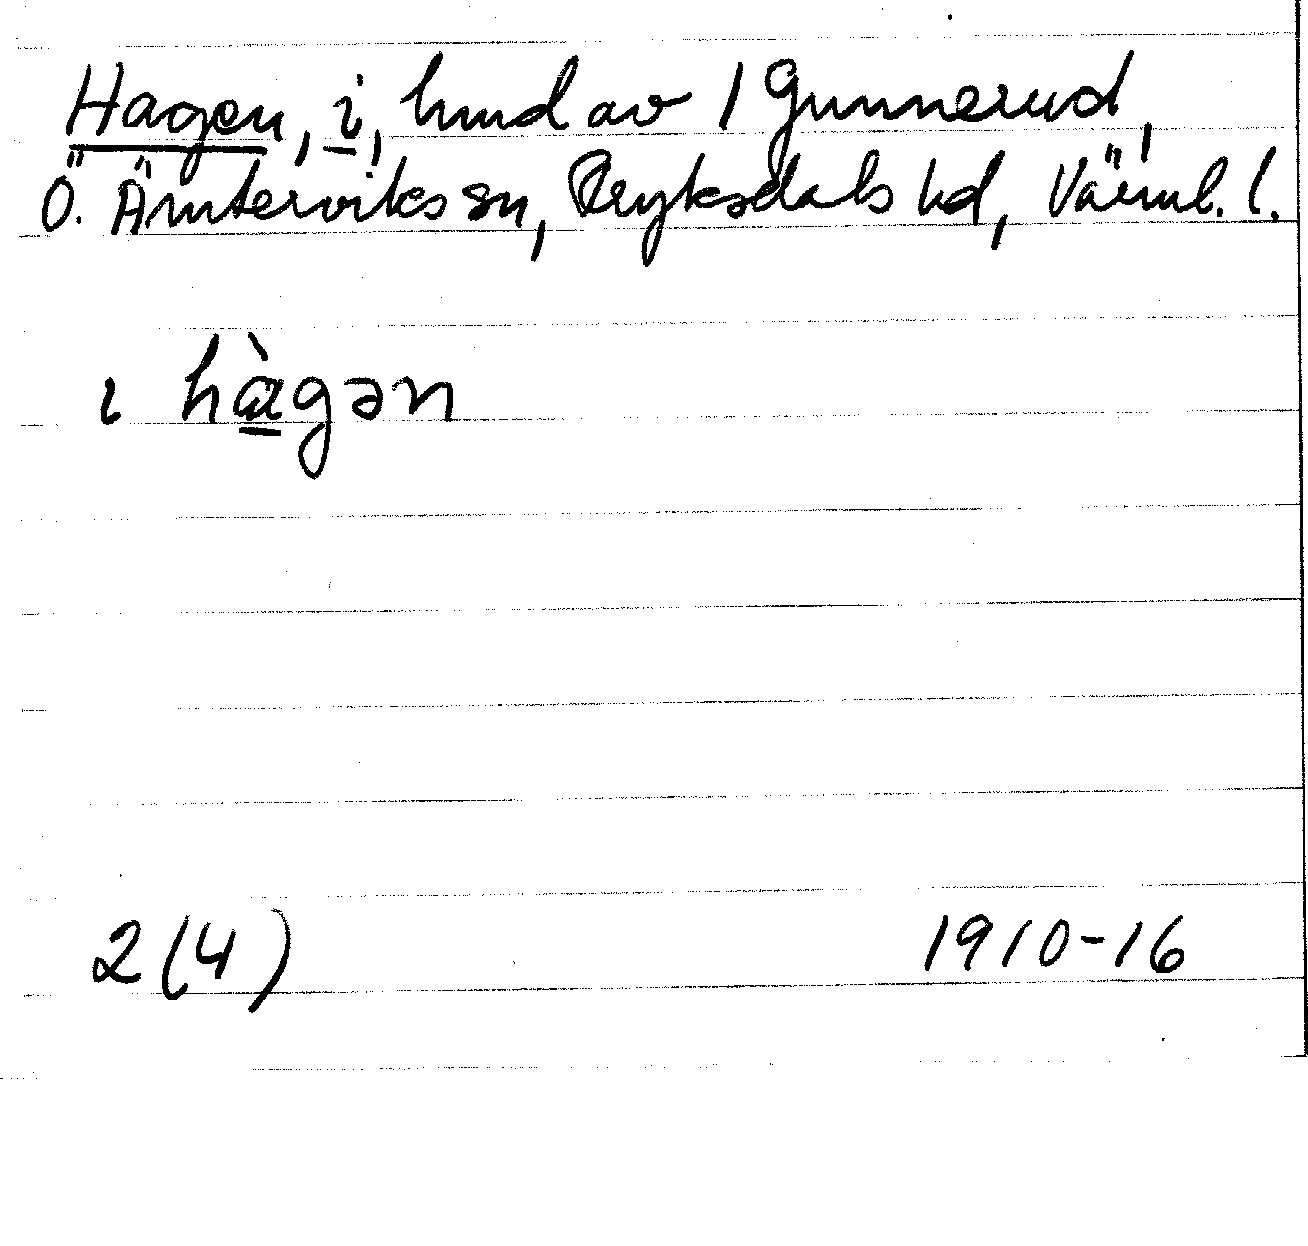 Hagen, i, hmd av 1 Gunnerud,
Ö. Ämterviks sn, Fryksdals hd, Värml. l.
ı hàgən
2(4)
1910-16